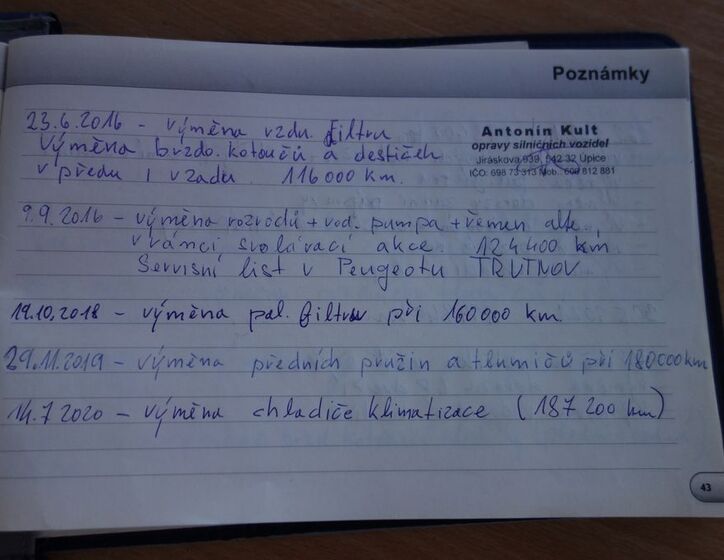 Poznámky
23.6.2016 - výměna vzdu. filtru
Výměna brzdo. kotoučů a destiček
v předu i vzadu 116000 km.
Antonín Kult
opravy silničních vozidel
Jiráskova 939, 542 32 Úpice
IČO: 698 73 313 Mob.: 608 812 881
9.9.2016 - výměna rozvodů + vod. pumpa + řemen alte.,
v rámci svolávací akce 124400 km
Servisní list v Peugeotu TRUTNOV
19.10.2018 - výměna pal. filtru při 160000 km.
29.11.2019 - výměna předních pružin a tlumičů při 180000km
14.7 2020 - výměna chladiče klimatizace (187 200 km)
43